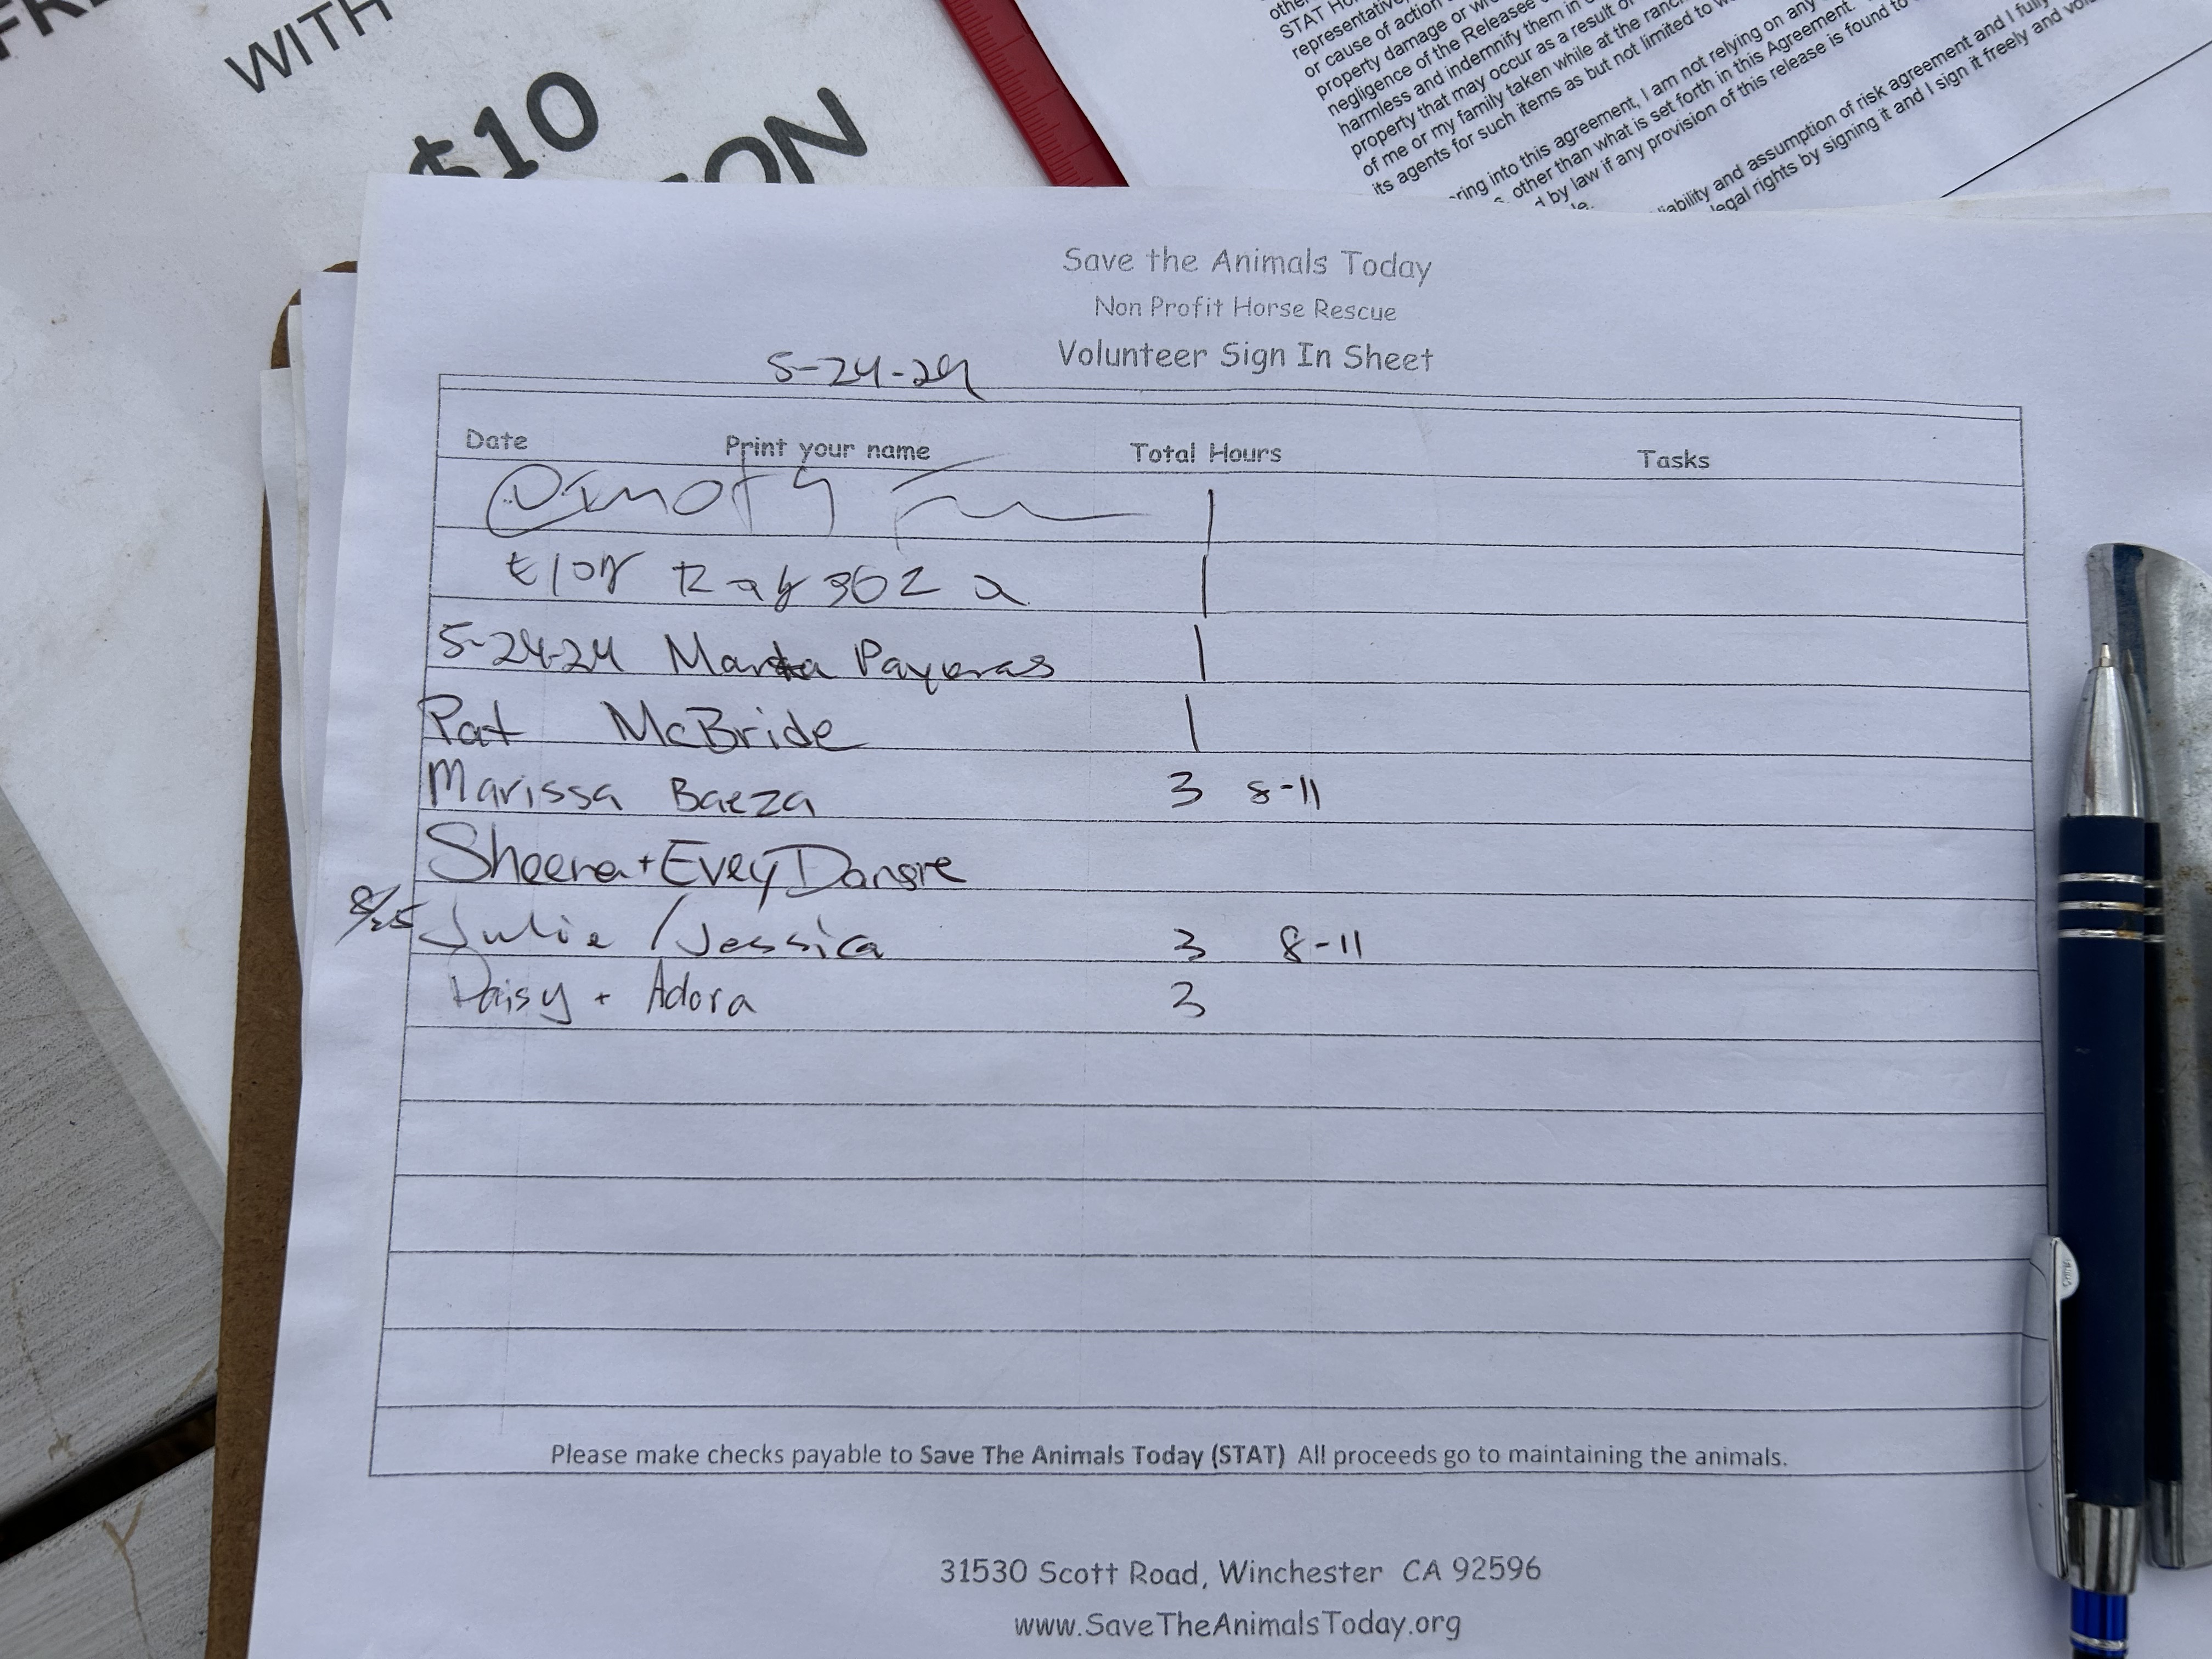 WITH
$10
other
STAT Ho
representative,
or cause of action
property damage or wr
negligence of the Releasee
harmless and indemnify them in c
property that may occur as a result o
of me or my family taken while at the ranc
its agents for such items as but not limited to w
ring into this agreement, I am not relying on any
other than what is set forth in this Agreement.
d by law if any provision of this release is found to
iability and assumption of risk agreement and I fully
legal rights by signing it and I sign it freely and volu
Save the Animals Today
Non Profit Horse Rescue
Volunteer Sign In Sheet
5-24-24
Date Print your name Total Hours Tasks
1
1
5-24-24 Marta Payeras 1
Pat McBride 1
Marissa Baeza 3 8-11
Sheena + Evey
Julie / Jessica 3 8-11
Daisy + Adora 3
Please make checks payable to Save The Animals Today (STAT) All proceeds go to maintaining the animals.
31530 Scott Road, Winchester CA 92596
www.SaveTheAnimalsToday.org